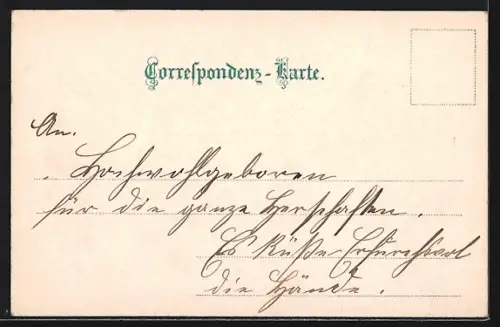 Correspondenz-Karte.
An.
Hochwohlgeboren
für die ganze Herschaften.
Es Küße Erfurchtsvol
die Hände.